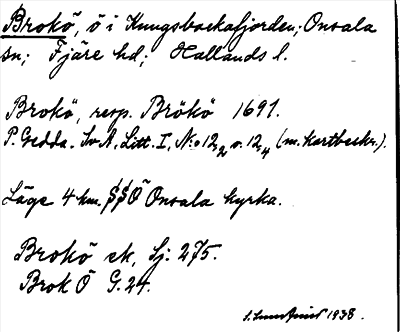 Brokö, ö i Kungsbackafjorden; Onsala
sn; Fjäre hd; Hallands l.
Brokö, resp. Brökö 1691.
P. Gedda. Sv A, Litt. I, No 12,2 o. 12,4 (m. kartbeskr.).
Läge 4 km. SSÖ Onsala kyrka.
Brokö ek, Sj: 275.
Brok Ö G. 24.
1938.